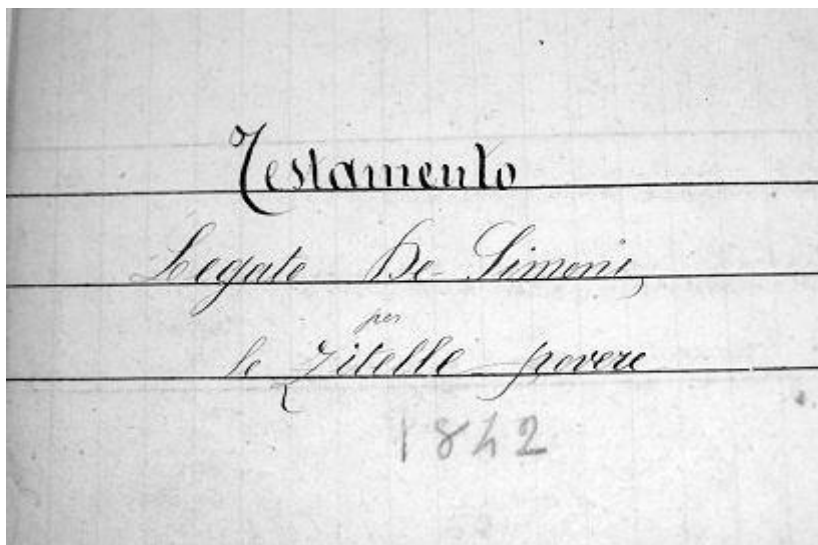 Testamento
Legato De-Simoni,
per
le Zitelle povere
1842